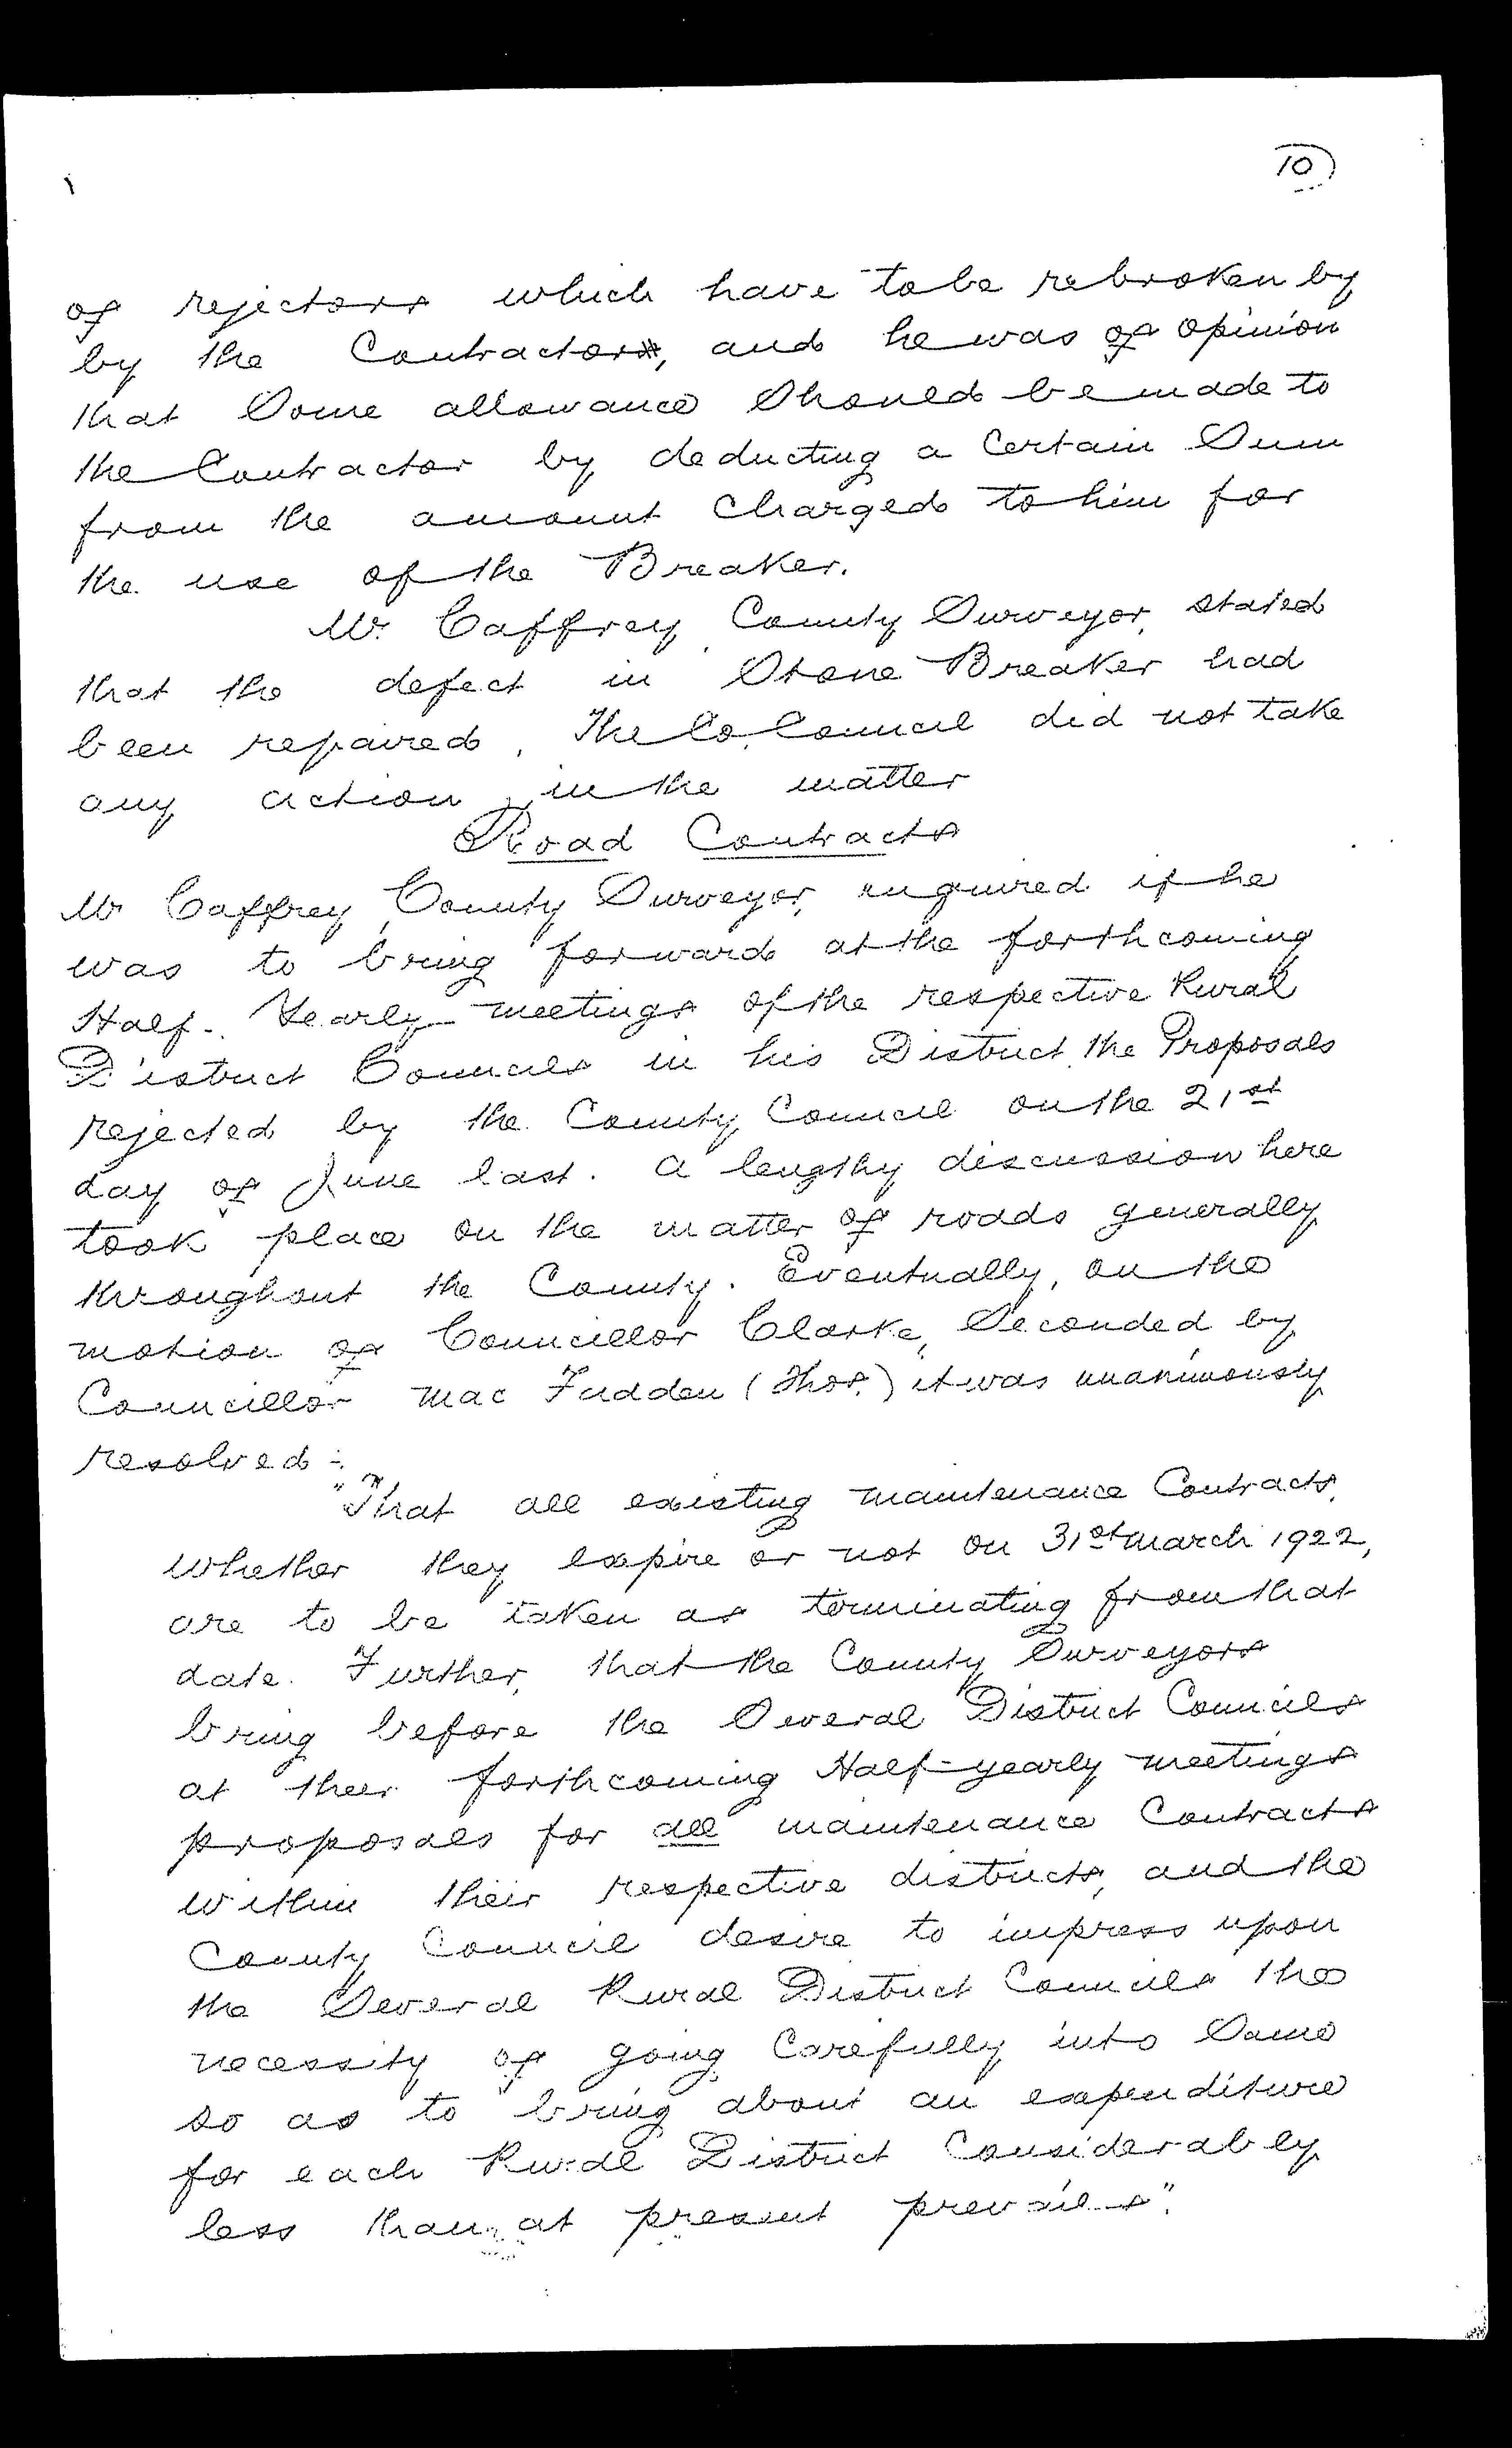 10
of rejectors which have to be rebroken by
by the Contractor, and he was of opinion
that Some allowance Should be made to
the Contractor by deducting a Certain Sum
from the amount Charged to him for
the use of the Breaker.
Mr. Caffrey, County Surveyor, stated
that the defect in Stone Breaker had
been repaired. The Co. Council did not take
any action in the matter
Road Contracts
Mr Caffrey, County Surveyor, enquired if he
was to bring forward at the forthcoming
Half-Yearly meetings of the respective Rural
District Councils in his District the Proposals
rejected by the County Council on the 21st
day of June last. A lengthy discussion here
took place on the matter of roads generally
throughout the County. Eventually, on the
motion of Councillor Clarke, Seconded by
Councillor Mac Fadden (Thos.) it was unanimously
resolved :-
"That all existing maintenance Contracts,
whether they expire or not on 31st March 1922,
are to be taken as terminating from that
date. Further, that the County Surveyors
bring before the Several District Councils
at their forthcoming Half-yearly meetings
proposals for all maintenance Contracts
within their respective districts, and the
County Council desire to impress upon
the Several Rural District Councils the
necessity of going Carefully into Same
so as to bring about an expenditure
for each Rural District Considerably
less than at present prevails".